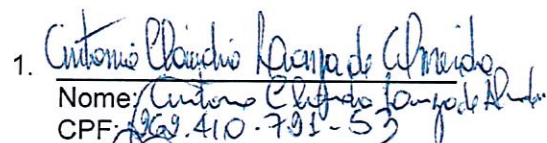 1. Antonio Cláudio de Almeida
Nome: Antonio Cláudio de Almeida
CPF: 969.410.791-53